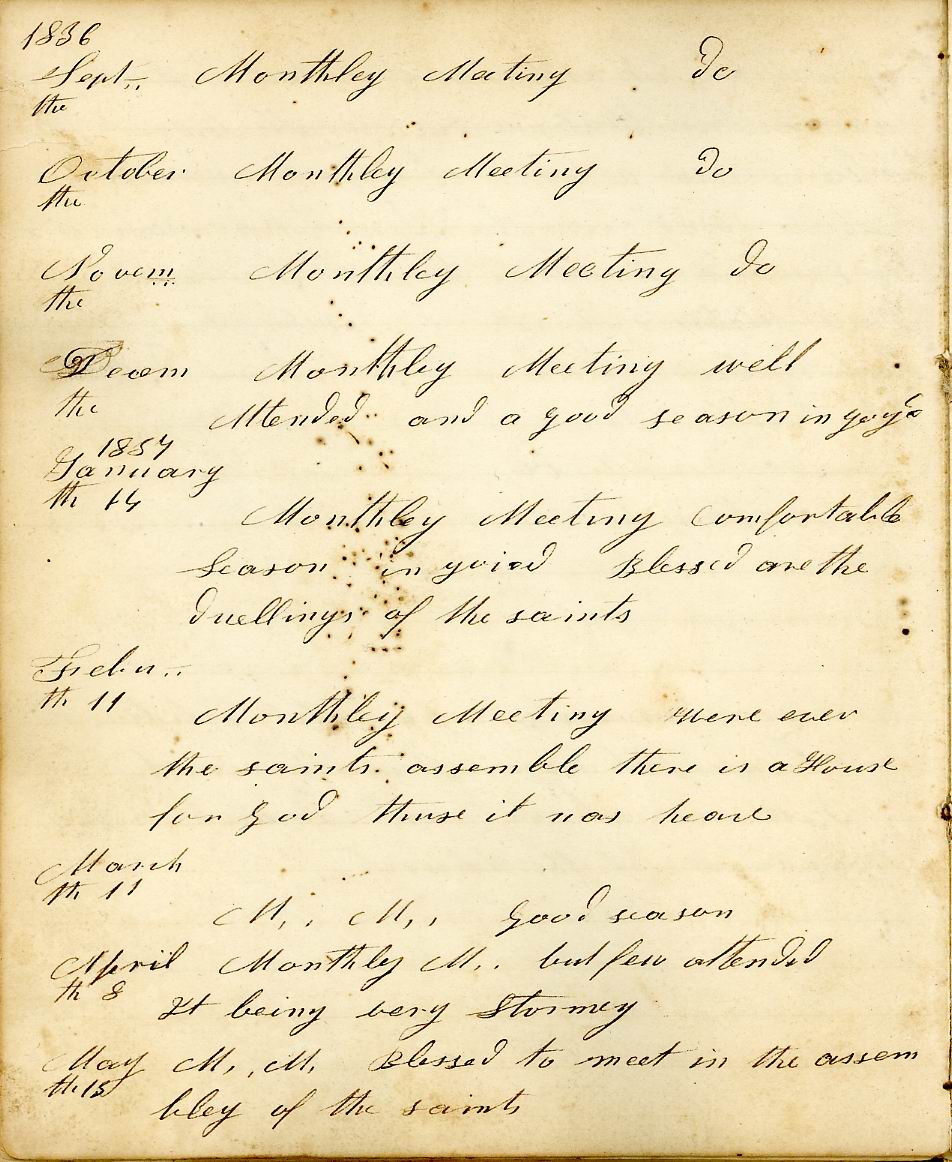 1836
Sept.. Monthley Meeting Do
the
October Monthley Meeting Do
the
Novem Monthley Meeting do
the
Decem Monthley Meeting well
the Attended and a good season injoy'd
1837
January
th 14
Monthley Meeting Comfortable
Season injoied Blessed are the
duellings of the saints
Febu..
th 11
Monthley Meeting were ever
the saints assemble there is a House
for God thuse it was heare
March
th 11
M.. M.. Good season
April Monthly M.. but few attended
th 8
It being very Stormey
May M.. M. Blessed to meet in the assem
th 13
bley of the saints